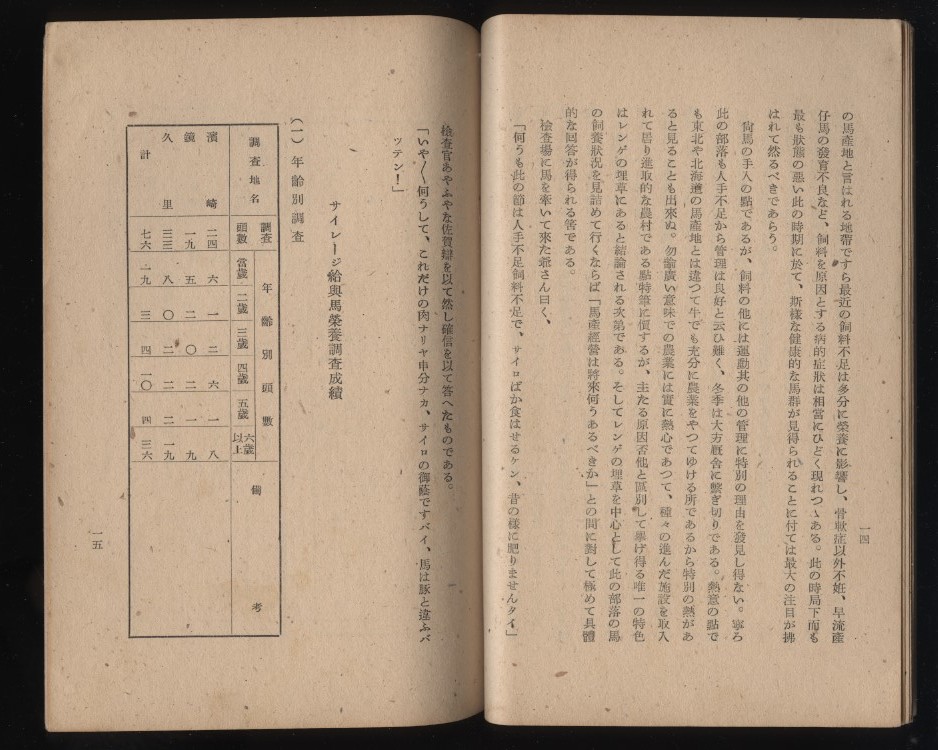 一四
の馬產地と言はれる地帶ですら最近の飼料不足は多分に榮養に影響し、骨軟症以外不姙、早流產
仔馬の發育不良など、飼料を原因とする病的症狀は相當にひどく現れつゝある。此の時局下而も
最も狀態の惡い此の時期に於て、斯樣な健康的な馬群が見得られることに付ては最大の注目が拂
はれて然るべきであらう。
尙馬の手入の點であるが、飼料の他には運動其の他の管理に特別の理由を發見し得ない。寧ろ
此の部落も人手不足から管理は良好と云ひ難く、冬季は大方厩舍に繫ぎ切りである。熱意の點で
も東北や北海道の馬產地とは違つて牛でも充分に農業をやつてゆける所であるから特別の熱があ
ると見ることも出來ぬ。勿論廣い意味での農業には實に熱心であつて、種々の進んだ施設を取入
れて居り進取的な農村である點特筆に價するが、主たる原因否他と區別して擧げ得る唯一の特色
はレンゲの埋草にあると結論される次第である。そしてレンゲの埋草を中心として此の部落の馬
の飼養狀況を見詰めて行くならば「馬產經營は將來何うあるべきか」との問に對して極めて具體
的な回答が得られる筈である。
檢查場に馬を牽いて來た爺さん曰く、
「何うも此の節は人手不足飼料不足で、サイロばか食はせるケン、昔の樣に肥りませんタイ」
檢查官あやふやな佐賀辯を以て然し確信を以て答へたものである。
「いや〳〵何うして、これだけの肉ナリヤ申分ナカ、サイロの御蔭ですバイ、馬は豚と違ふバ
ッテン！」
サイレージ給與馬榮養調査成績
（一）年齡別調査
調査地名 調査頭數 年齡別頭數 備考
當歲 二歲 三歲 四歲 五歲 六歲以上
濱崎 二四 六 一 二 六 一 八
鏡 一九 五 二 〇 二 一 九
久里 三三 八 〇 二 二 二 一九
計 七六 一九 三 四 一〇 四 三六
一五